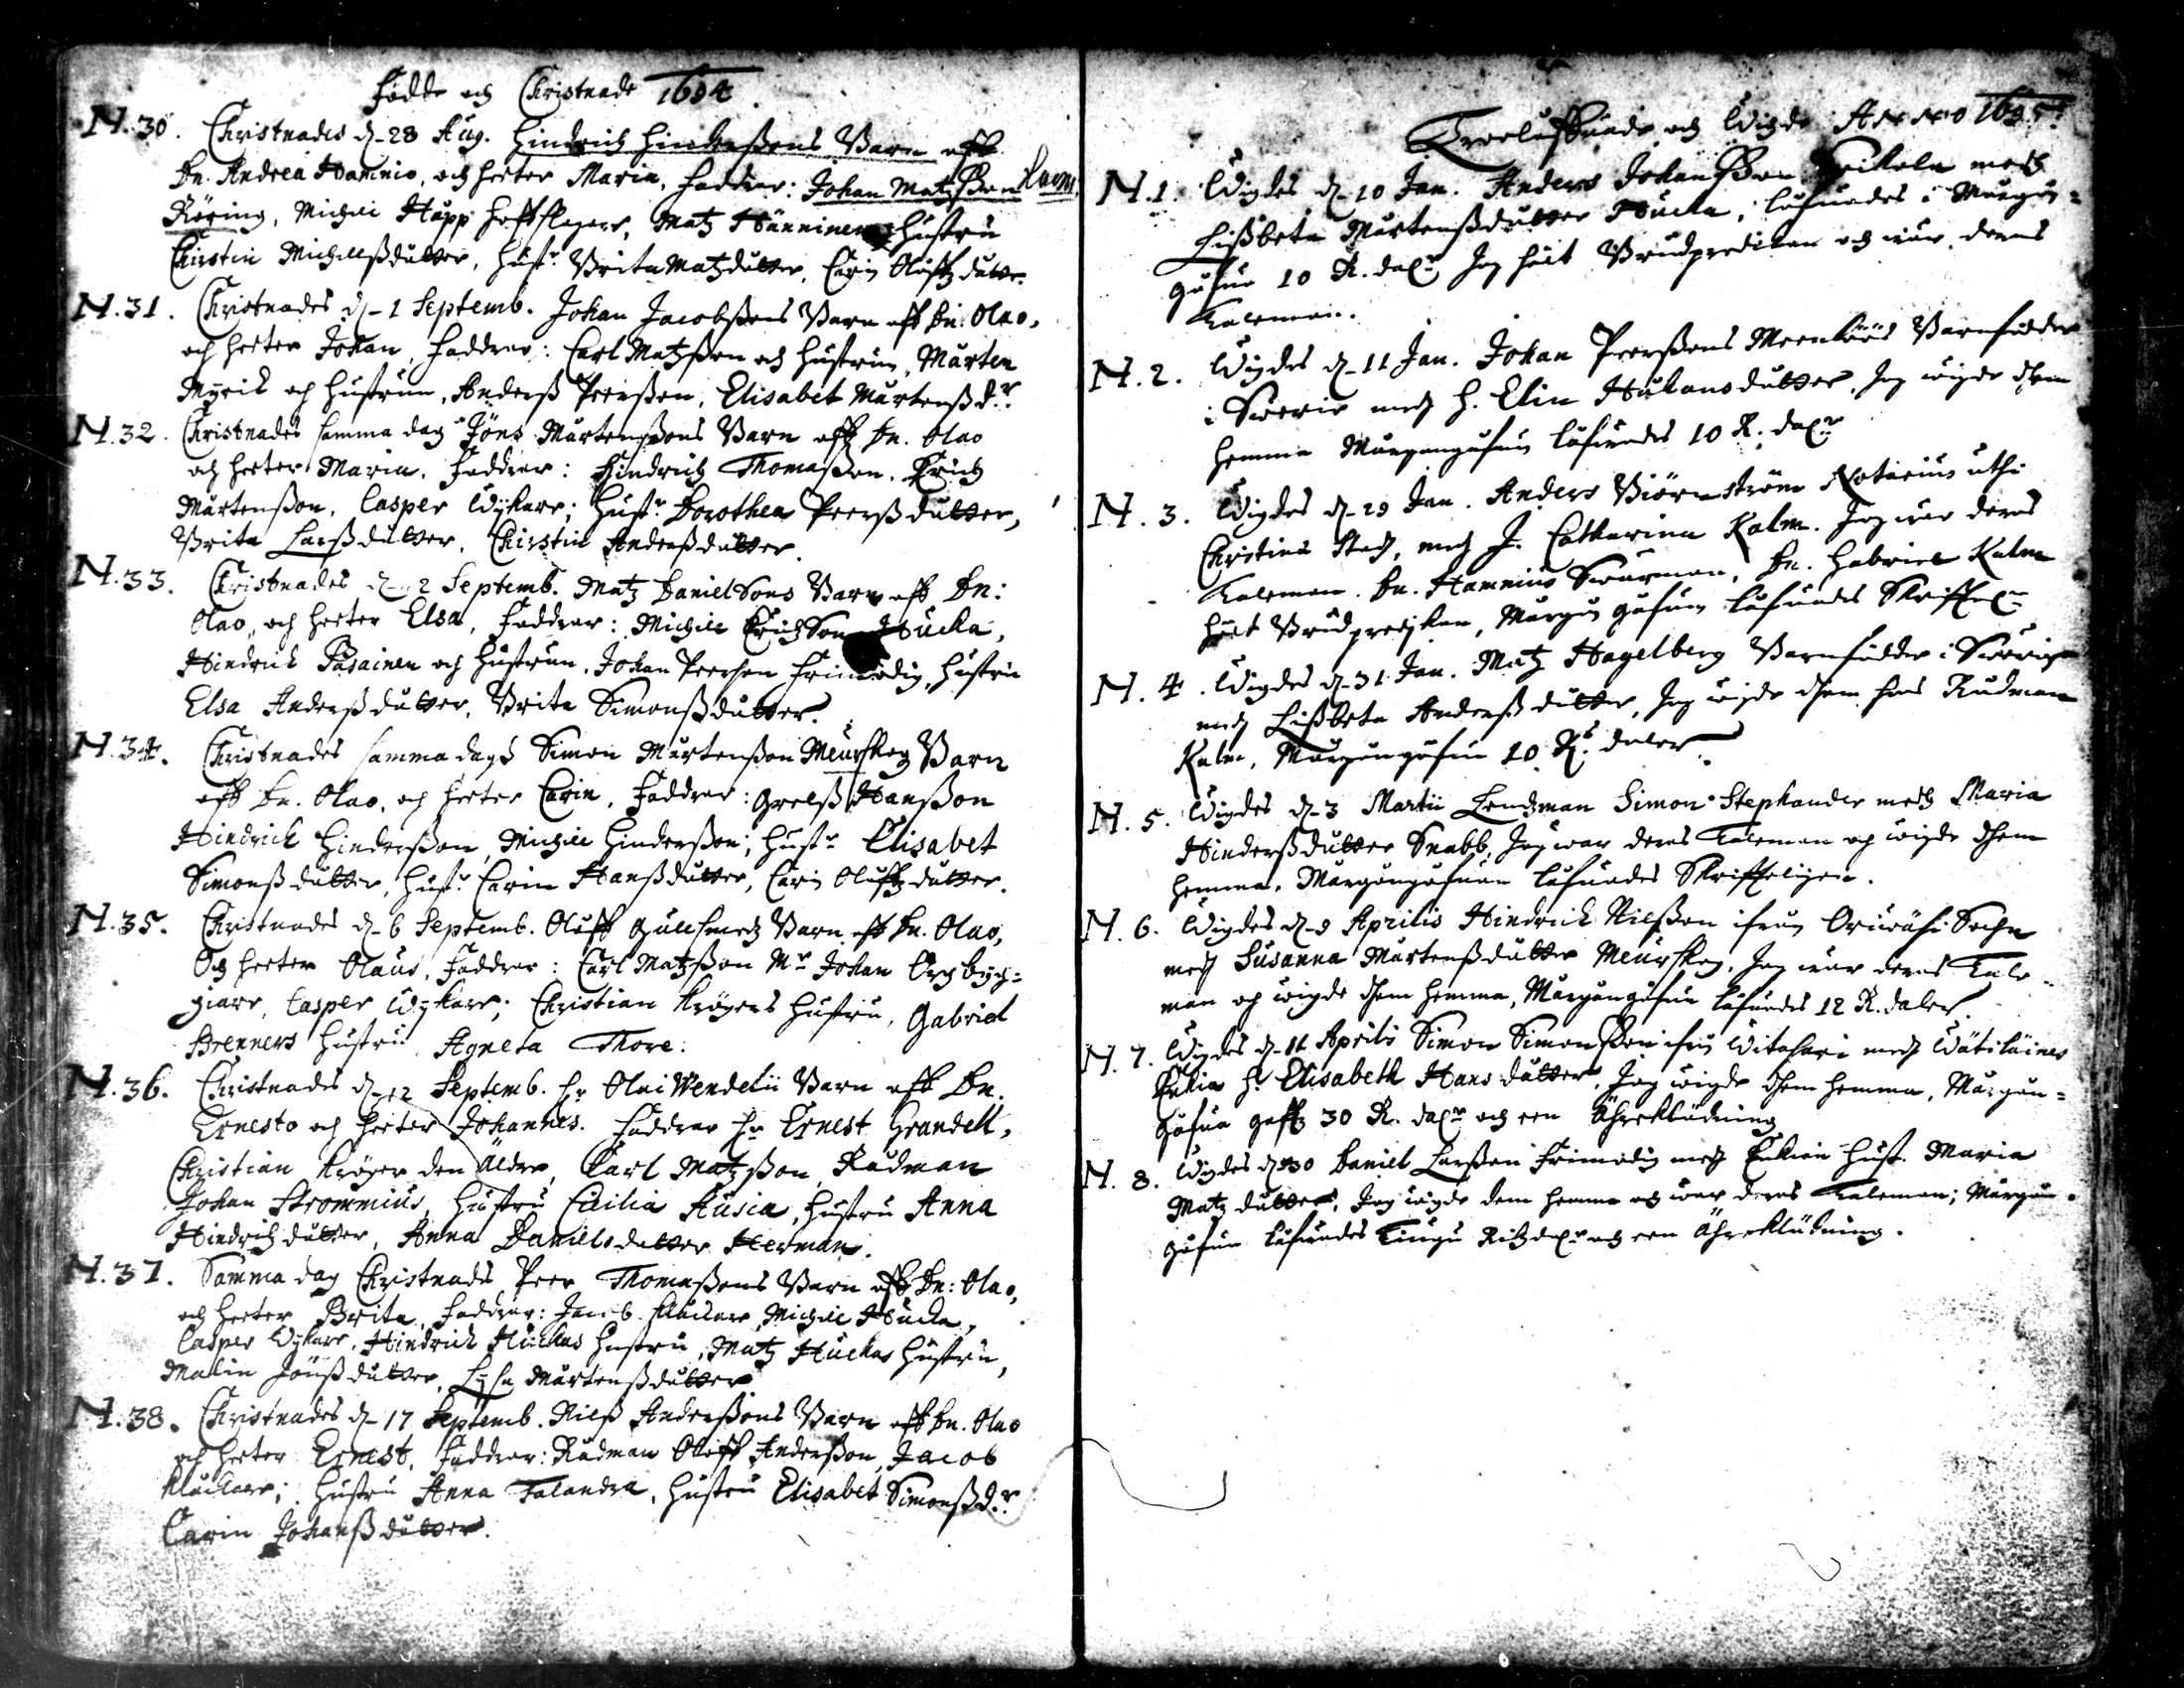 Födde och Christnade 1694
N. 30. Christnades d. 28 Aug. Hindrich Hinderßons Barn aff
Dn. Andrea Hamnio, och heeter Maria, Faddrar: Johan Matzßon
Röring, Michill Happ hoffslagare, Matz Hänninen Hustru
Chirstin Michillßdåtter, Hustr. Brita Matzdåtter, Carin Oluffzdåtter.
N. 31. Christnades d. 1 Septemb. Johan Jacobßons Barn aff Dn. Olao,
och heeter Johan, Faddrar: Carl Matzßon och Hustrun, Mårten
Myrick och Hustrun, Anderß Peerßon, Elisabet Mårtenßd:r
N. 32. Christnades samma dag Jöns Mårtenßons Barn aff Dn. Olao
och heeter Maria. Faddrar: Hindrich Thomaßon, Erich
Mårtenßon, Casper Wykare; Hustr. Dorothea Peerßdåtter,
Brita Larßdåtter, Chirstin Anderßdåtter.
N. 33. Christnades d. 2 Septemb. Matz DanielSons Barn aff Dn:
Olao, och heeter Elsa, Faddrar: Michill ErichSon Hucka,
Hindrich Pasainen och Hustrun, Johan Peerson Frimodig, Hustru
Elsa Anderßdåtter, Brita Simonßdåtter.
N. 34. Christnades samma dags Simon Mårtenßon Meurskog Barn
aff Dn. Olao, och heeter Carin, Faddrar: Grelß Hanßon
Hindrich Hinderßon, Michill Hinderßon; Hustr Elisabet
Simonßdåtter, Hustr Carin Hanßdåtter, Carin Oluffzdåtter.
N. 35. Christnades d. 6 Septemb. Oluff Gullsmedz Barn aff Dn. Olao,
Och heeter Olaus, Faddrar: Carl Matzßon Mr Johan Orgbyg-
giare, Casper Wykare; Christian Krögers Hustru, Gabriel
Brenners Hustru Agneta Thore.
N. 36. Christnades d. 12 Septemb. Hr Olai Wendelii Barn aff Dn.
Ernesto och heeter Johannes. Faddrar Hr Ernest Grandell,
Christian Kröger den Äldre, Carl Matzßon, Rådman
Johan Strommius, Hustru Cicilia Ausia, Hustru Anna
Hindrichdåtter, Anna Danielsdåtter Herman.
N. 37. Samma dag Christnades Peer Thomaßons Barn aff Dn: Olao,
och heeter Brita, Faddrar: Jacob Klockare, Michill Hucka,
Casper Wykare, Hindrich Huckas Hustru, Matz Huckas Hustru,
Malin Jönßdåtter, Lisa Mårtenßdåtter
N. 38. Christnades d. 17 Septemb. Nilß Anderßons Barn aff Dn. Olao
och heeter Ernest, Faddrar: Rådman Oluff Anderßon, Jacob
Klockare; Hustru Anna Falandra, Hustru Elisabet Simonßd:r
Carin Johanßdåtter.
Troolofwade och Wigde Anno 1695.
N. 1. Wigdes d. 10 Jan. Anders Johanßon med
Lißbeta Mårtenßdåtter Hucka, lofwades i Morgon-
gåfwa 10 R. dalr Jag hölt Brudpredikan och war deras
Taleman.
N. 2. Wigdes d. 11 Jan. Johan Peerßons Barnfödder
i Swerie med H. Elin Håkansdåtter, Jag wigde dhem
hemma Morgongåfwa lofwades 10 R. dalr
N. 3. Wigdes d. 29 Jan. Anders Biörnström Notarius uthi
Christinæ Stad, med J. Catharina Kalm. Jag war deras
Taleman. Dn. Hamnius Swarman, Dn. Gabriel Kalm
hölt Brudpredikan, Morgongåfwan lofwades Skrifftl:n
N. 4. Wigdes d. 31 Jan. Matz Hagelberg Barnfödder i Swerige
med Lißbeta Anderßdåtter, Jag wigde dhem hoos Rådman
Kalm, Morgongåfwa 10 R. daler.
N. 5. Wigdes d. 3 Martii Lendzman Simon Stephander med Maria
Hinderßdåtter Snabb, Jag war deras Taleman och wigde dhem
hemma, Morgongåfwan lofwades Skrifftligen.
N. 6. Wigdes d. 9 Aprilis Hindrich Nilßon ifrån Oriwäsi Sochn
med Susanna Mårtenßdåtter Meurskog, Jag war deras Tale-
man och wigde dhem hemma, Morgongåfwa lofwades 12 R. daler.
N. 7. Wigdes d. 14 Aprilis Simon Simonßon ifrån Witasari med Wätiläines
Enkia H. Elisabeth Hansdåtter, Jag wigde dhem hemma, Morgon-
gåfwa gaffz 30 R. dalr och een Ährekledning
N. 8. Wigdes d. 30 Daniel Larßon Frimodig med Enkian Hust. Maria
Matzdåtter, Jag wigde dem hemma och war deras Taleman; Morgon-
gåfwa lofwades Tiugu Rikzdalr och een Ährekledning.